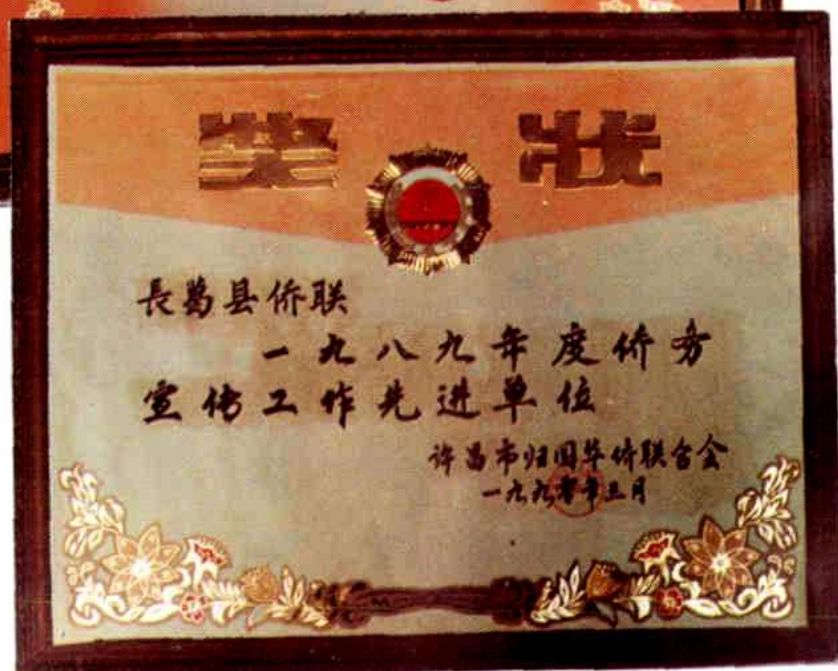 奖 状
長葛县侨联
一九八九年度侨务
宣传工作先进单位
许昌市归国华侨联合会
一九九零年三月